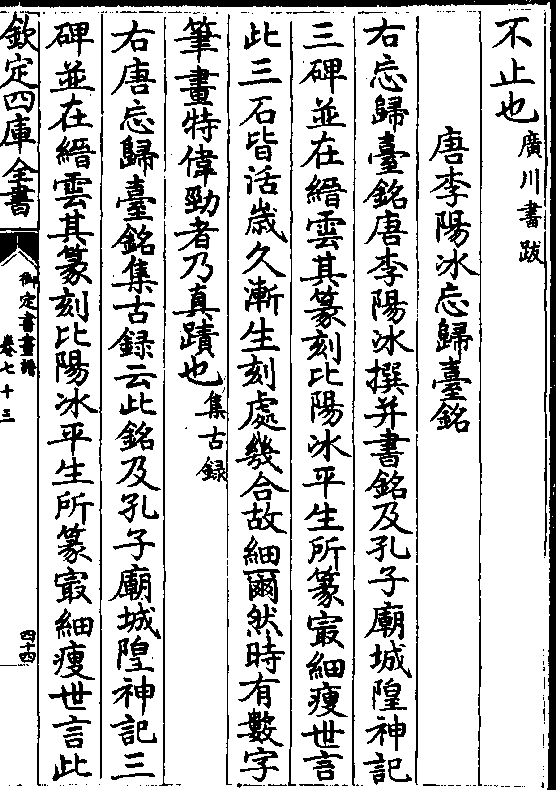 不止也廣川書跋
唐李陽冰忘歸臺銘
右忘歸臺銘唐李陽冰撰并書銘及孔子廟城隍神記
三碑並在縉雲其篆刻比陽冰平生所篆㝡細瘦世言
此三石皆活歲久漸生刻處幾合故細爾然時有數字
筆畫特偉勁者乃真蹟也集古録
右唐忘歸臺銘集古録云此銘及孔子廟城隍神記三
碑並在縉雲其篆刻比陽冰平生所篆㝡細瘦世言此
欽定四庫全書
御定書畫譜
卷七十三
四十四